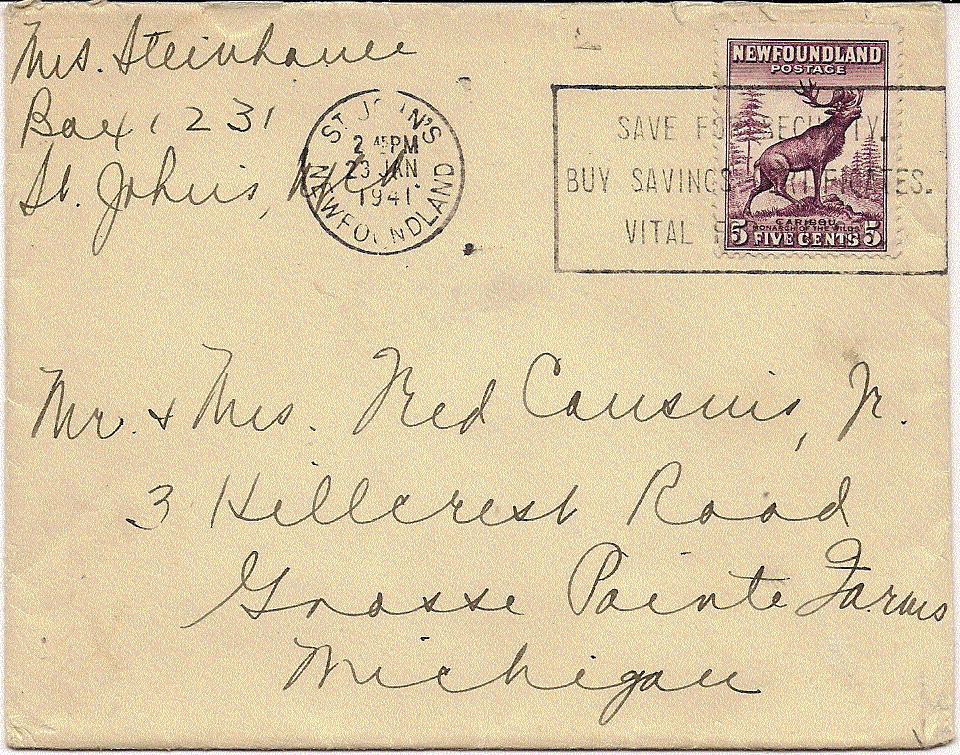 Mrs. Steinhauer
Box 1231
St. John's, Nfld
ST. JOHN'S
2 45PM
23 JAN
1941
NEWFOUNDLAND
SAVE FOR SECURITY.
BUY SAVINGS CERTIFICATES.
VITAL
NEWFOUNDLAND
POSTAGE
CARIBOU
MONARCH OF THE WILDS
5 FIVE CENTS 5
Mr. & Mrs. Ned Cousins, Jr.
3 Hillcrest Road
Grosse Pointe Farms
Michigan